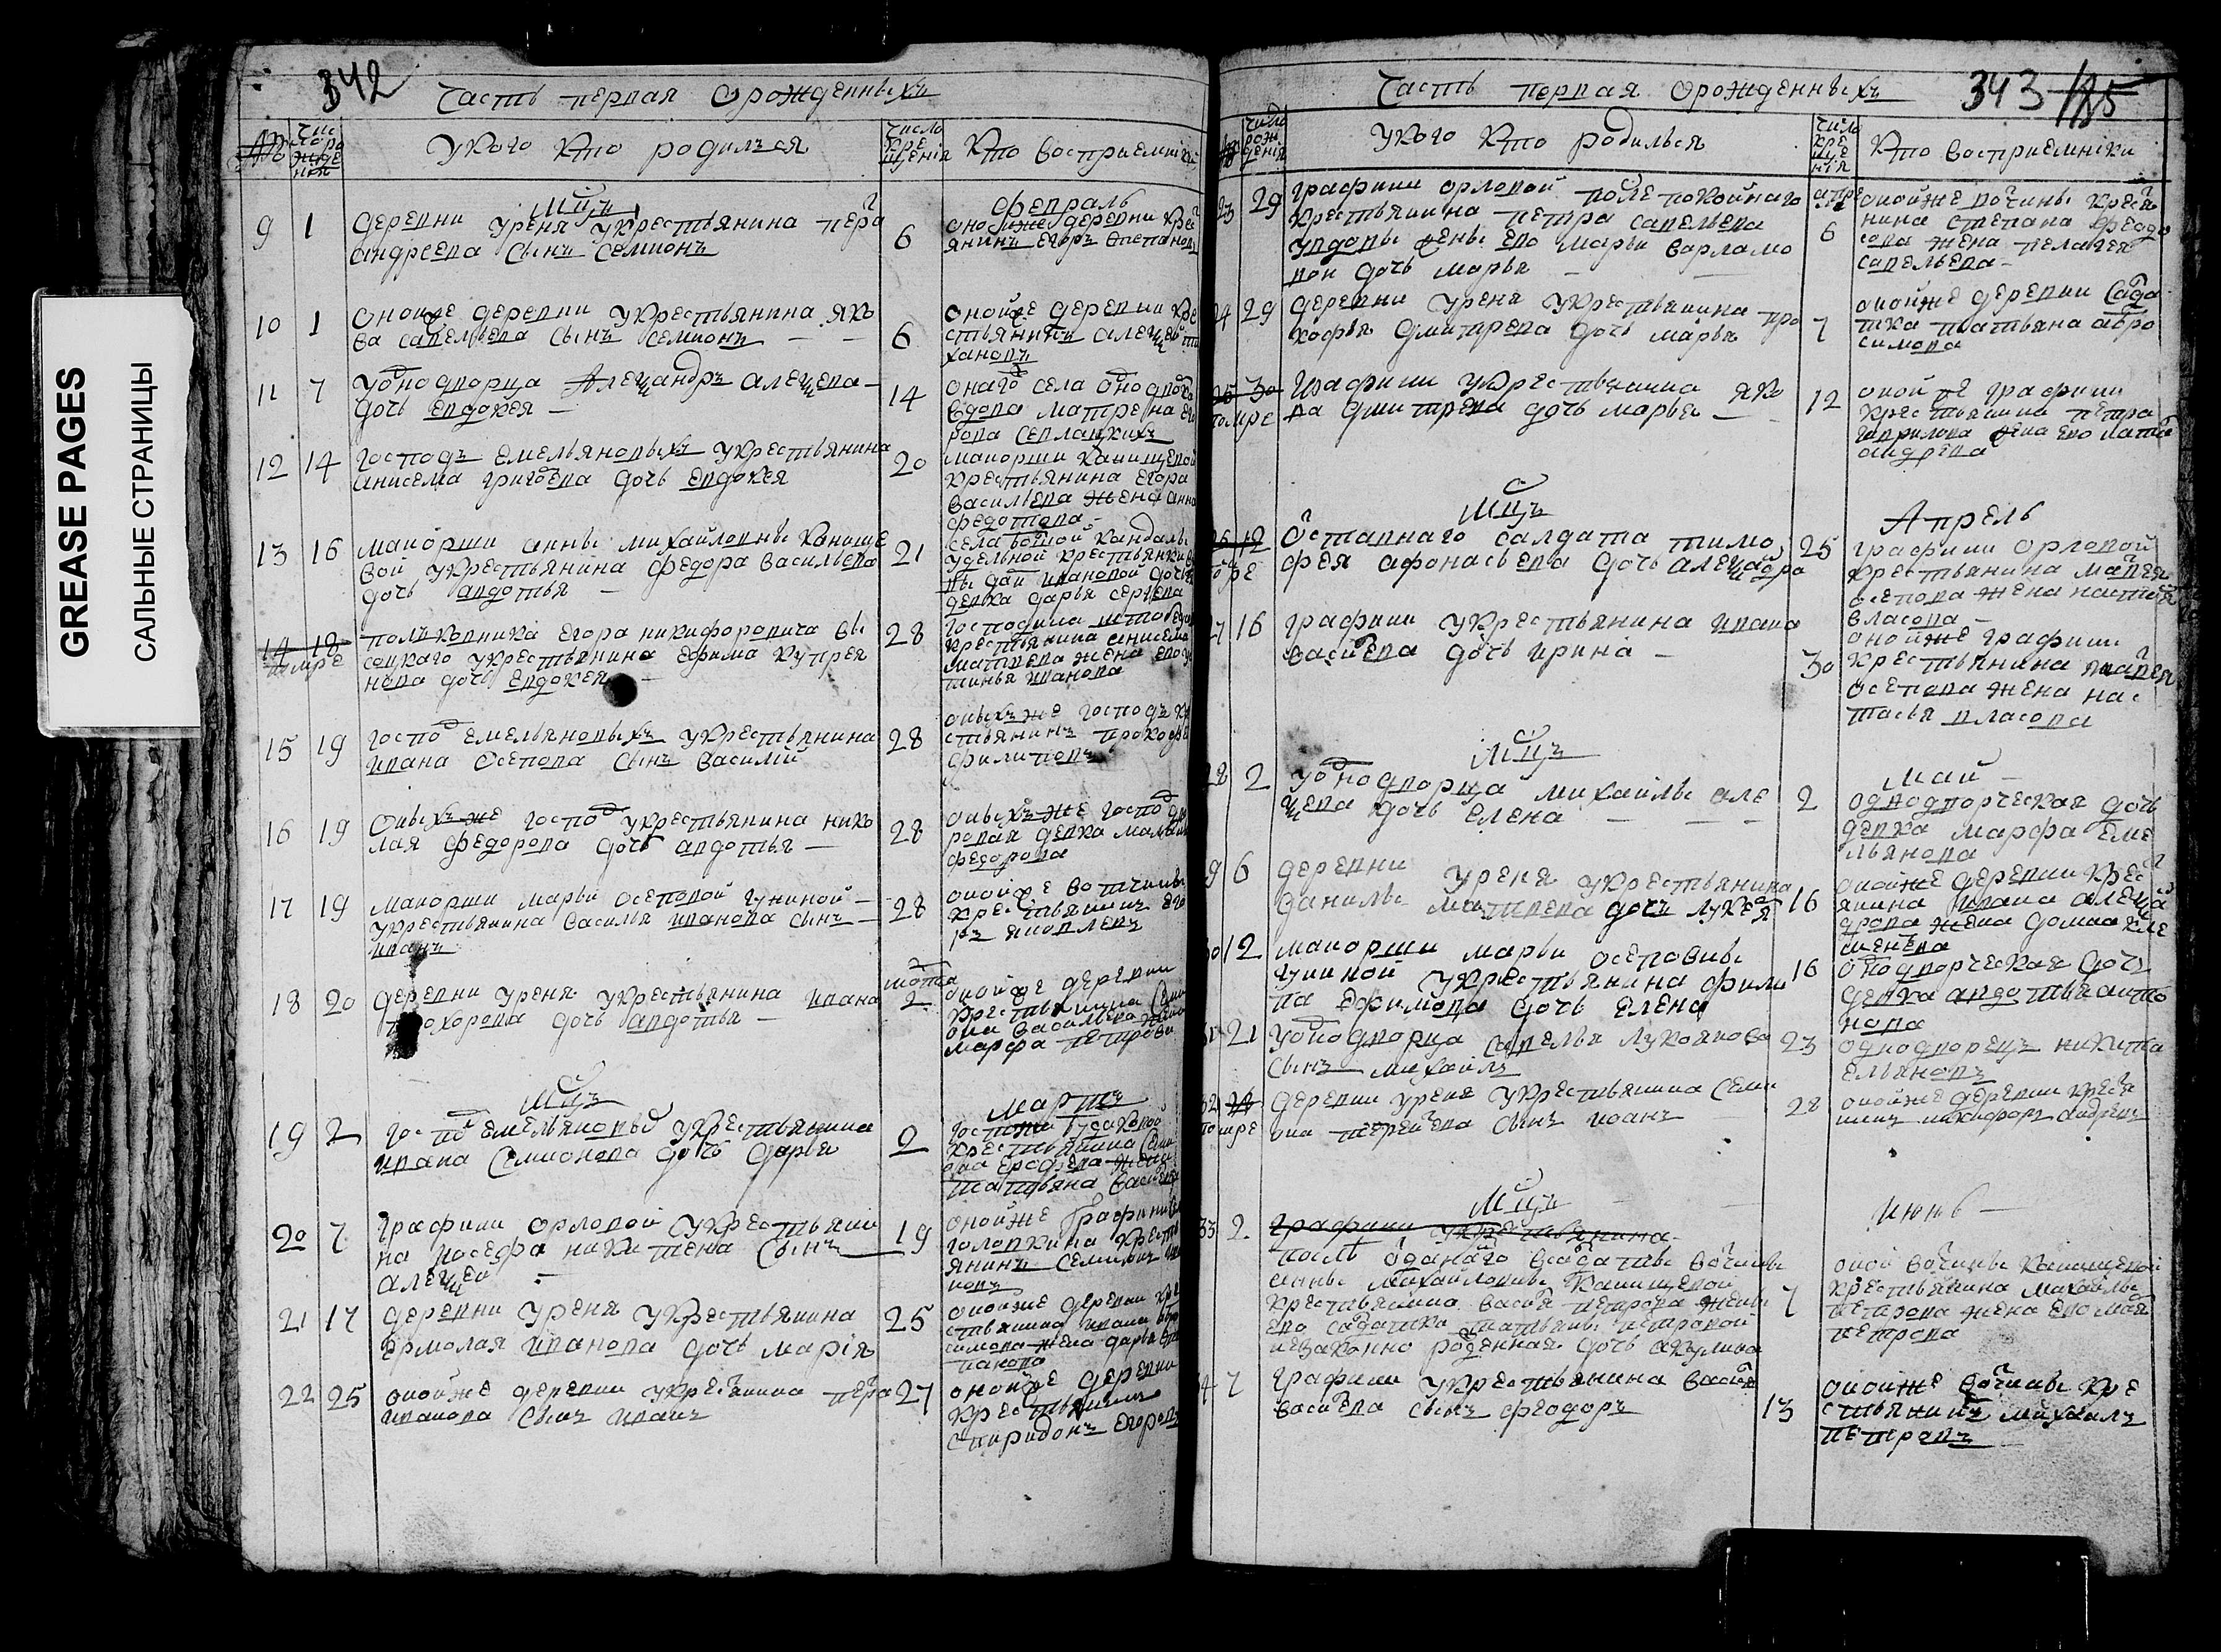 GREASE PAGES
САЛЬНЫЕ СТРАНИЦЫ
342
Часть первая орожденныхъ
Число рожденія
Укого кто родился
Число крещенія
Кто восприемники
Мцъ
Февраль
9 1
деревни Уреня укрестьянина петра
андреева сынъ семионъ
6
оной же деревни крест
янинъ егоръ степановъ
10 1
оной же деревни укрестьянина яко
ва савельева сынъ семионъ
6
оной же деревни кре
стьянинъ алеѯей
11 7
уоднодворца Алеѯандръ алеѯева
дочь евдокея
14
онаго села однодворка
вдова матрена его
рова
12 14
господъ емельяновыхъ укрестьянина
анисема григоева дочь евдокея
20
маиорши канищевой
крестьянина егора
васильева жена анна
федотова
13 16
маиорши анны михайловны канище
вой укрестьянина федора васильева
дочь авдотья
21
села
удельной крестьянки
ивановой дочь
девка дарья сергеева
14 18
помре
полъковника егора никифоровича вы
соцкаго укрестьянина ефима купрея
нова дочь евдокея
28
господина
крестьянина анисема
матвеева жена его
иванова
15 19
госпо емельяновыхъ укрестьянина
ивана осепова сынъ василий
28
оныхъ же господъ кре
стьянинъ прокофей
филиповъ
16 19
оныхъ же госпо укрестьянина нико
лая федорова дочь авдотья
28
оныхъ же госпо дво
ровая девка
федорова
17 19
маиорши марьи осеповой гуниной
укрестьянина василья иванова сынъ
иванъ
28
оной же вотчины
крестьянинъ его
ръ яковлевъ
18 20
деревни уреня укрестьянина ивана
прохорова дочь авдотья
марта
2
оной же деревни
крестьянина семи
она васильева жена
марфа петрова
Мцъ
Мартъ
19 2
госпо емельяновы укрестьянина
ивана семионова дочь дарья
9
госпожи
крестьянина семи
она жена
татьяна
20 7
графини орловой укрестьяни
на иосефа никитена сынъ
алеѯей
19
оной же графини
крест
янинъ семионъ ива
новъ
21 17
деревни уреня укрестьянина
ермолая иванова дочь марія
25
оной же деревни кре
стьянина ивана авро
симова жена дарья сте
панова
22 25
оной же деревни укрестянина петра
иванова сынъ иванъ
27
оной же деревни
крестьянинъ
спиридонъ егоровъ
343 185
Часть первая орожденныхъ
Число рожденія
Укого кто родилься
Число крещенія
Кто восприемники
23 29
графини орловой после покойнаго
крестьянина петра савельева
удовы жены его марьи варламо
вой дочь марья
апре
6
оной же вочины кресть
нина степана феодо
сова жена пелагея
савельева
24 29
деревни уреня укрестьянина про
кофья дмитрева дочь марья
7
оной же деревни салда
тка татьяна авро
симова
25 30
помре
графини укрестьянина яко
ва дмитрева дочь марья
12
оной же графини
крестьянина петра
гаврилова жена его
андрева
Мцъ
Апрель
26 12
помре
отставнаго салдата тимо
фея афонасьева дочь алеѯадра
25
графини орловой
крестьянина матвея
осепова жена настасья
власова
27 16
графини укрестьянина ивана
васиева дочь ирина
30
оной же графини
крестьянина матвея
осепова жена нас
тасья власова
Мцъ
Май
28 2
уоднодворца михаилы але
ѯева дочь елена
2
однодворческая дочь
девка марфа еме
льянова
29 6
деревни уреня укрестьянина
данилы матвеева дочь лукея
16
оной же деревни крес
янина ивана алеѯан
дрова жена домна кле
ментева
30 12
маиорши марьи осеповны
гуниной укрестьянина фили
па ефимова дочь елена
16
однодворческая дочь
девка авдотья анто
нова
31 21
уоднодворца савелья лукоянова
сынъ михаилъ
23
однодворецъ никита
емельяновъ
32 24
помре
деревни уреня укрестьянина семи
она сынъ иоанъ
28
оной же деревни крестя
нинъ никифоръ андреевъ
Мцъ
июнь
33 2
графини укрестьянина
посль оданаго всалдаты вочины
анны михайловны канищевой
крестьянина васия петрова жены
его салдатки татьяны петровой
незаконно роденная дочь акулина
7
оной вочины канищевой
крестьянина михаилы
петрова жена его марья
петрова
34 7
графини укрестьянина васия
васиева сынъ феодоръ
13
оной же вочины кре
стьянинъ михаилъ
петровъ